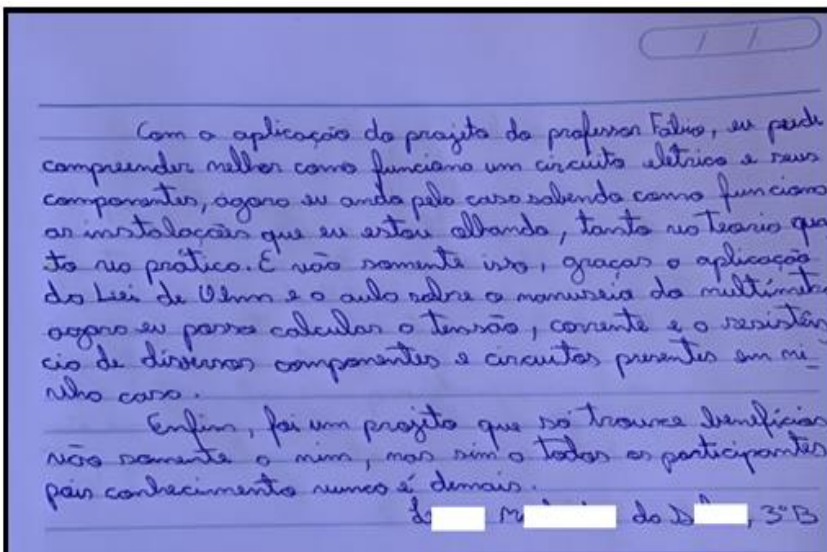 Com a aplicação do projeto do professor Fábio, eu pude
compreender melhor como funciona um circuito elétrico e seus
componentes, agora eu ando pela casa sabendo como funciona
as instalações que eu estou olhando, tanto na teoria qua
to na prática. E não somente isso, graças a aplicação
da Lei de Ohm e a aula sobre o manuseio do multímetro
agora eu posso calcular a tensão, corrente e a resistên
cia de diversos componentes e circuitos presentes em mi_
nha casa.
Enfim, foi um projeto que só trouxe benefícios
não somente a mim, mas sim a todos os participantes
pois conhecimento nunca é demais.
da 3º B